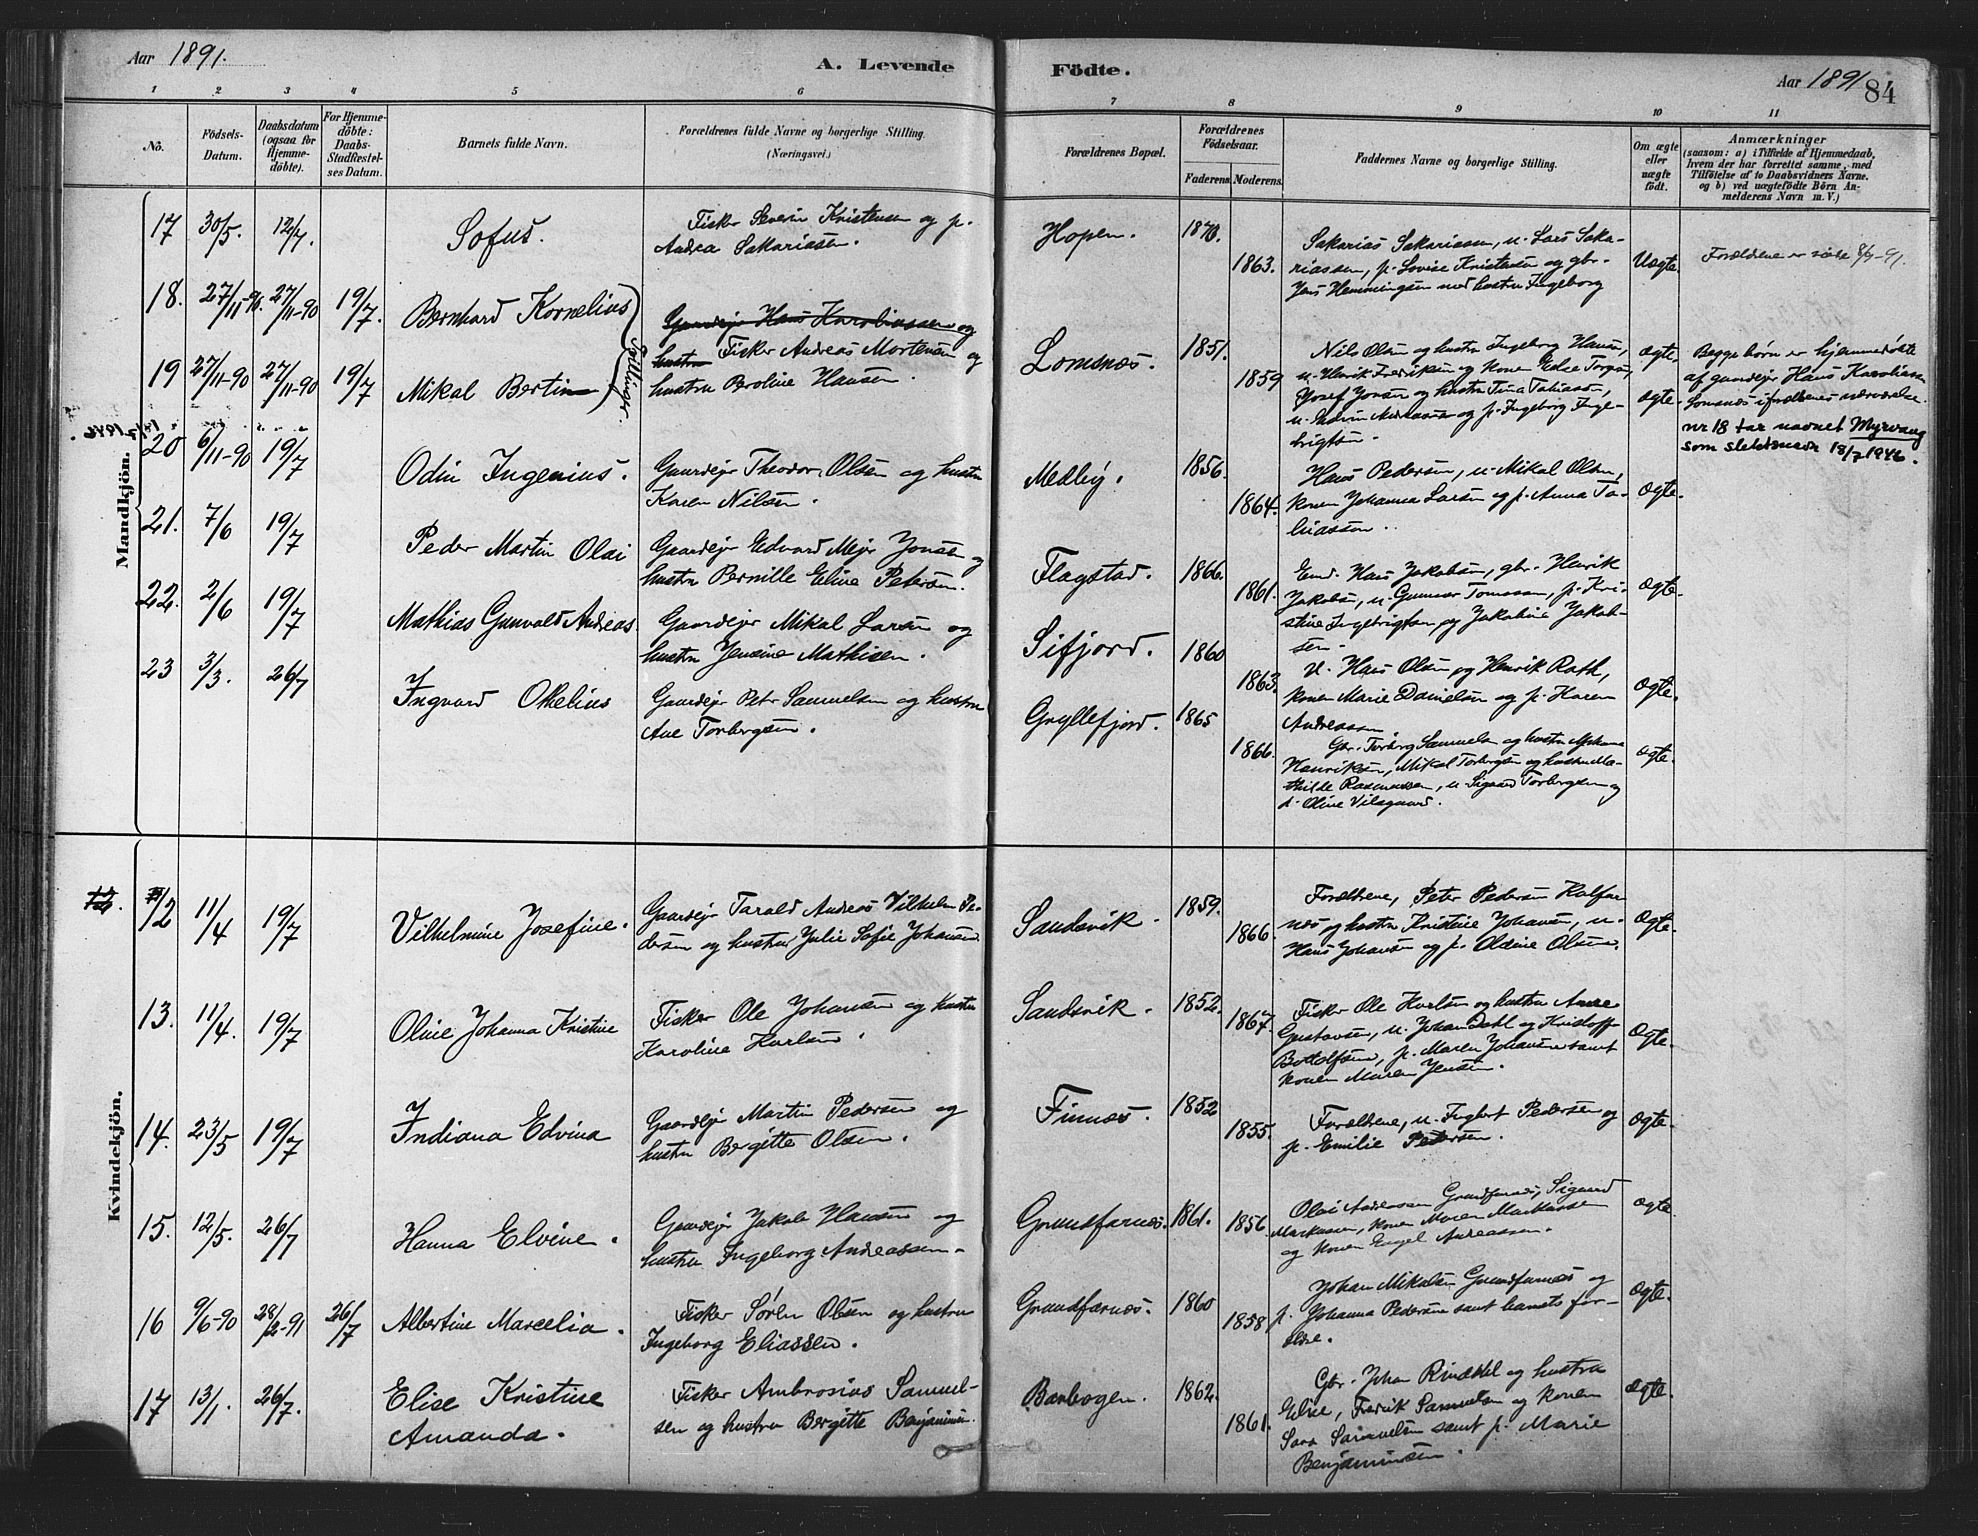 Aar 1891.
A. Levende Födte.
Aar 1891
84
1 2 3 4 5 6 7 8 9 10 11
No.
Födsels-
Datum.
Daabsdatum
(ogsaa for
Hjemme-
döbte).
For Hjemme-
döbte:
Daabs-
Stadfæstel-
ses Datum.
Barnets fulde Navn.
Forældrenes fulde Navne og borgerlige Stilling.
(Næringsvei.)
Forældrenes Bopæl.
Forældrenes
Födselsaar.
Faderens. Moderens.
Faddernes Navne og borgerlige Stilling.
Om ægte
eller
uægte
födt.
Anmærkninger
(saasom: a) i Tilfælde af Hjemmedaab,
hvem der har forrettet samme, med
Tilföielse af to Daabsvidners Navne,
og b) ved uægtefödte Börn An-
melderens Navn m. V.)
Mandkjön.
17 30/5. 12/7. Sofus.
Fisker Severin Kristensen og p.
Andrea Sakariassen.
Hopen. 1870. 1863.
Sakarias Sakariassen, u. Lars Saka-
riassen, p. Lovise Kristensen og gbr.
Jens Hemmingsen med hustru Ingeborg
Uægte.
Forældrene er viede 8/9-91.
18. 27/11-90. 27/11-90 19/7. Bernhard Kornelius
Gaardejr Hans Karoliussen og
hustru Fisker Andreas Mortensen og
hustru Beroline Hansen.
19 27/11-90 27/11-90 19/7 Mikal Bertin
Tvillinger
Lomsnæs. 1851. 1859
Nils Olsen og hustru Ingeborg Hansen,
u. Henrik Fredriksen og konen Elise Torgers,
Josef Jonsen og hustru Tina Tobiassen,
u. Edvin Andreassen og p. Ingeborg Inge-
brigtsen.
Ægte.
Ægte.
Begge børn er hjemmedøbte
af gaardejr Hans Karoliussen
Lomsnæs i forældrenes nærværelse.
nr 18 tar navnet Myrvang
som slektsnavn 18/7 1946.
20 6/11-90 19/7 Odin Ingenius.
Gaardejr Theodor Olsen og hustru
Karen Nilsen.
Medby. 1856. 1864.
Hans Pedersen, u. Mikal Olsen,
konen Johanna Larsen og p. Anna To-
biassen.
Ægte.
21. 7/6 19/7 Peder Martin Olai
Gaardejr Edvard Mejer Jonsen og
hustru Pernille Eline Petersen.
Flagstad. 1866. 1861.
Emd. Hans Jakobsen, gbr. Henrik
Jakobsen, u. Gunnar Tomassen, p. Kri-
stine Ingebrigtsen og Jakobine Jakob-
sen.
Ægte.
22. 2/6 19/7 Mathias Gunvald Andreas
Gaardejer Mikal Larsen og
hustru Jensine Mathisen.
Sifjord. 1860 1863.
U. Hans Olsen og Henrik Rath,
konen Marie Danielsen og p. Karen
Andreassen
Ægte.
23 3/3. 26/7 Ingvard Otelius
Gaardejr Peter Samuelsen og hustru
Ane Torbergsen.
Gryllefjord. 1865 1866.
Gbr. Torberg Samuelsen og hustru
Henriksen, Mikal Torbergsen og hustru Ma-
thilde Rasmussen, u. Sigurd Torbergsen og
p. Oline Vilsgaard.
Ægte.
Kvindekjön.
12. 11/4 19/7 Vilhelmine Josefine.
Gaardejr Tarald Andreas Vilhelm Pe-
dersen og hustru Julie Sofie Johansen
Sandsvik. 1859. 1866.
Forældrene, Peter Pedersen Kalfar
næs og hustru Kristine Johansen, u.
Hans Johansen og p. Oldine Olsen.
Ægte.
13. 11/4. 19/7 Oline Johanna Kristine
Fisker Ole Johansen og hustru
Karoline Karlsen.
Sandsvik. 1852. 1867.
Fisker Ole Karlsen og hustru Anne
Gustavsen, u. Johan Dahl og Kristoff-
Bottolfsen, p. Maren Johansen samt
konen Maren Jensen.
Ægte.
14. 23/5 19/7 Indiana Edvina
Gaardejr Martin Pedersen og
hustru Bergitte Olsen.
Finnæs. 1852 1855.
Forældrene, u. Ingbert Pedersen og
p. Emilie Pedersen.
Ægte.
15. 12/5. 26/7 Hanna Elvine.
Gaardejr Jakob Hansen og
hustru Ingeborg Andreassen.
Grundfarnæs. 1861. 1856.
Olai Andreassen Grundfarnæs, Sigurd
Markussen, konen Maren Markussen
og konen Engel Andreassen.
Ægte.
16 9/6-90 28/2-91 26/7 Albertine Marcelia.
Fisker Søren Olsen og hustru
Ingeborg Eliassen.
Grundfarnæs. 1860 1858
Johan Mikalsen Grundfarnæs og
p. Johanna Pedersen samt barnets for-
ældre.
Ægte.
17 13/1. 26/7. Elise Kristine
Amanda.
Fisker Ambrosius Samuel-
sen og hustru Bergitte Benjaminsen.
Barbogen. 1862. 1861.
Gbr. Johan Rinddal og hustru
Elise, Fredrik Samuelsen og konen
Sara Samuelsen samt p. Marie
Benjaminsen.
Ægte.